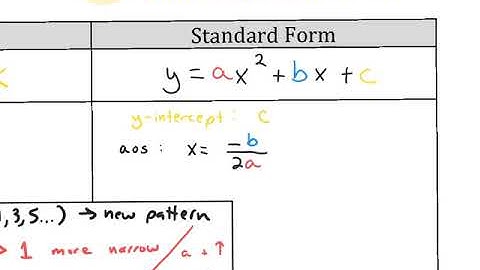 Standard Form
y = ax² + bx + c
y-intercept : c
aos : x = -b/2a
,3,5...) → new pattern
1 more narrow / a + ↑